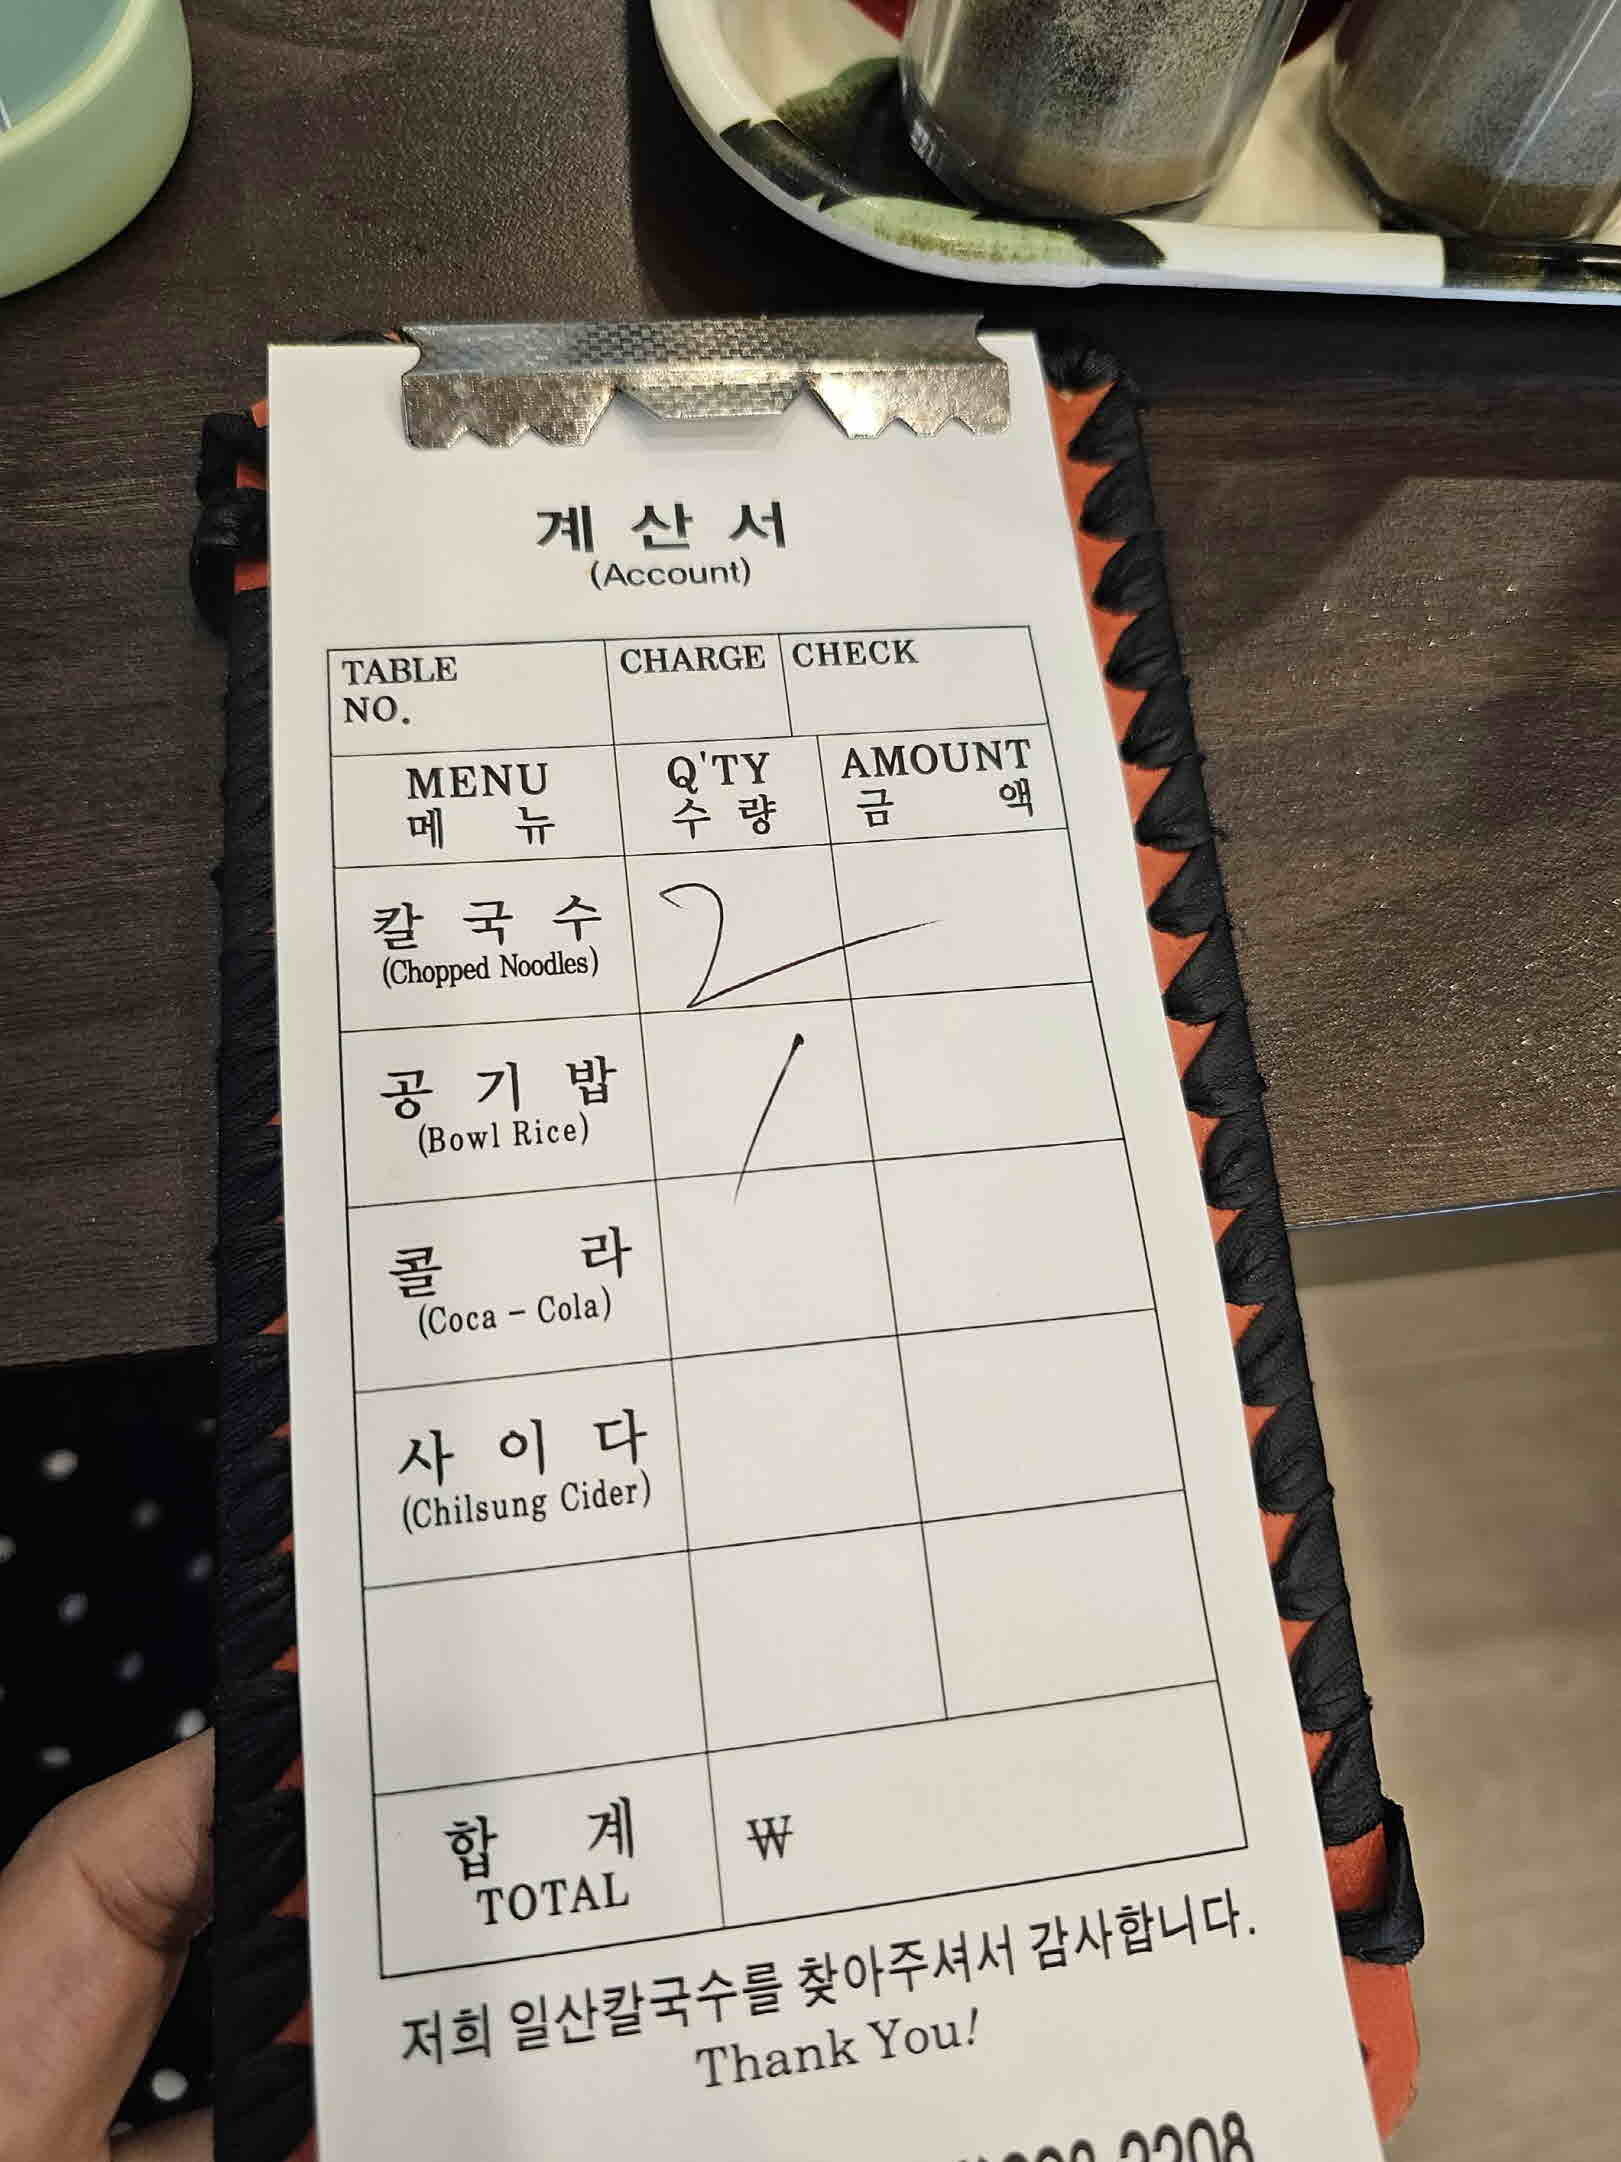 계 산 서
(Account)
TABLE NO. CHARGE CHECK
MENU Q'TY AMOUNT
메 뉴 수 량 금 액
칼 국 수 2
(Chopped Noodles)
공 기 밥 1
(Bowl Rice)
콜 라
(Coca - Cola)
사 이 다
(Chilsung Cider)
합 계 ₩
TOTAL
저희 일산칼국수를 찾아주셔서 감사합니다.
Thank You!